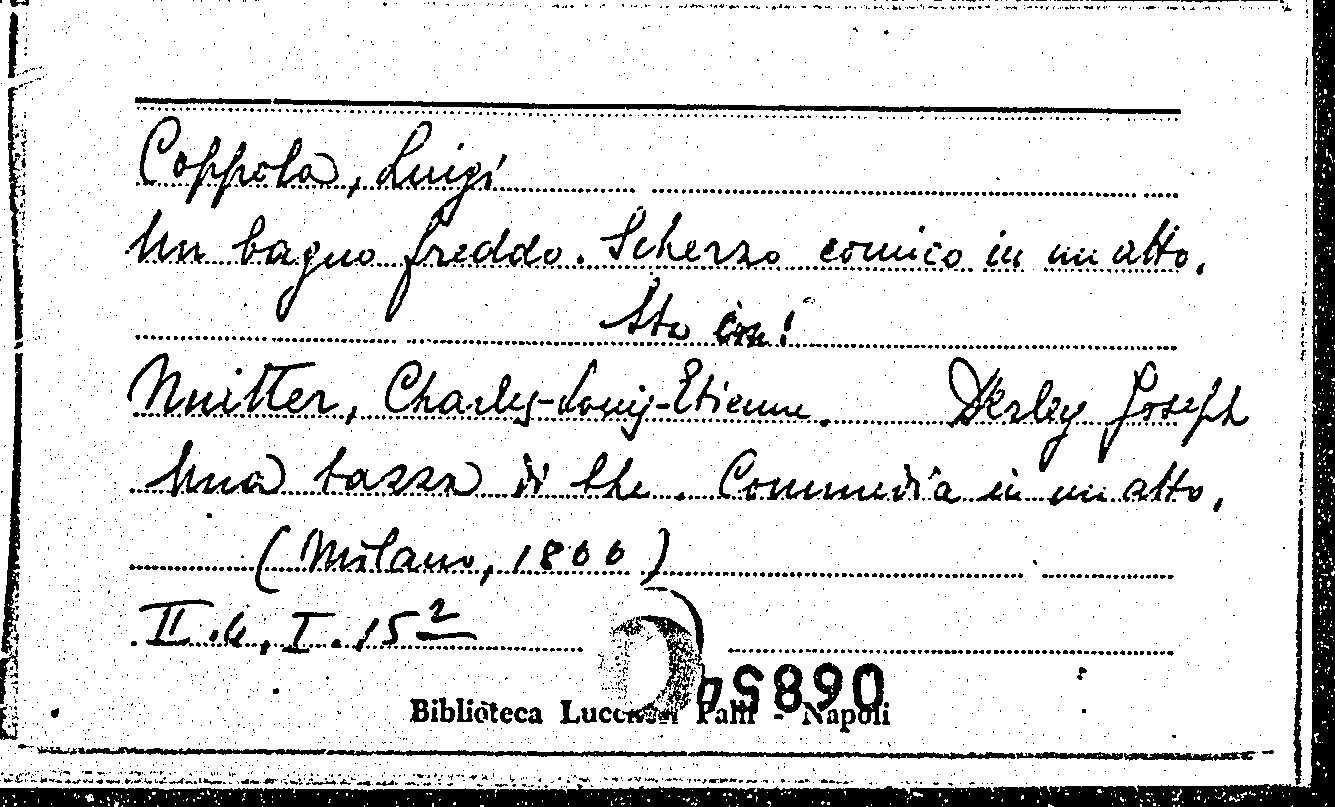 Coppola, Luigi
Un bagno freddo. Scherzo comico in un atto.
Sta con!
Nuitter, Charles-Louis-Étienne. Derley Joseph
Una tazza di the. Commedia in un atto.
(Milano, 1866)
II.4.I.15²
06859
Biblioteca Lucchesi Palli - Napoli